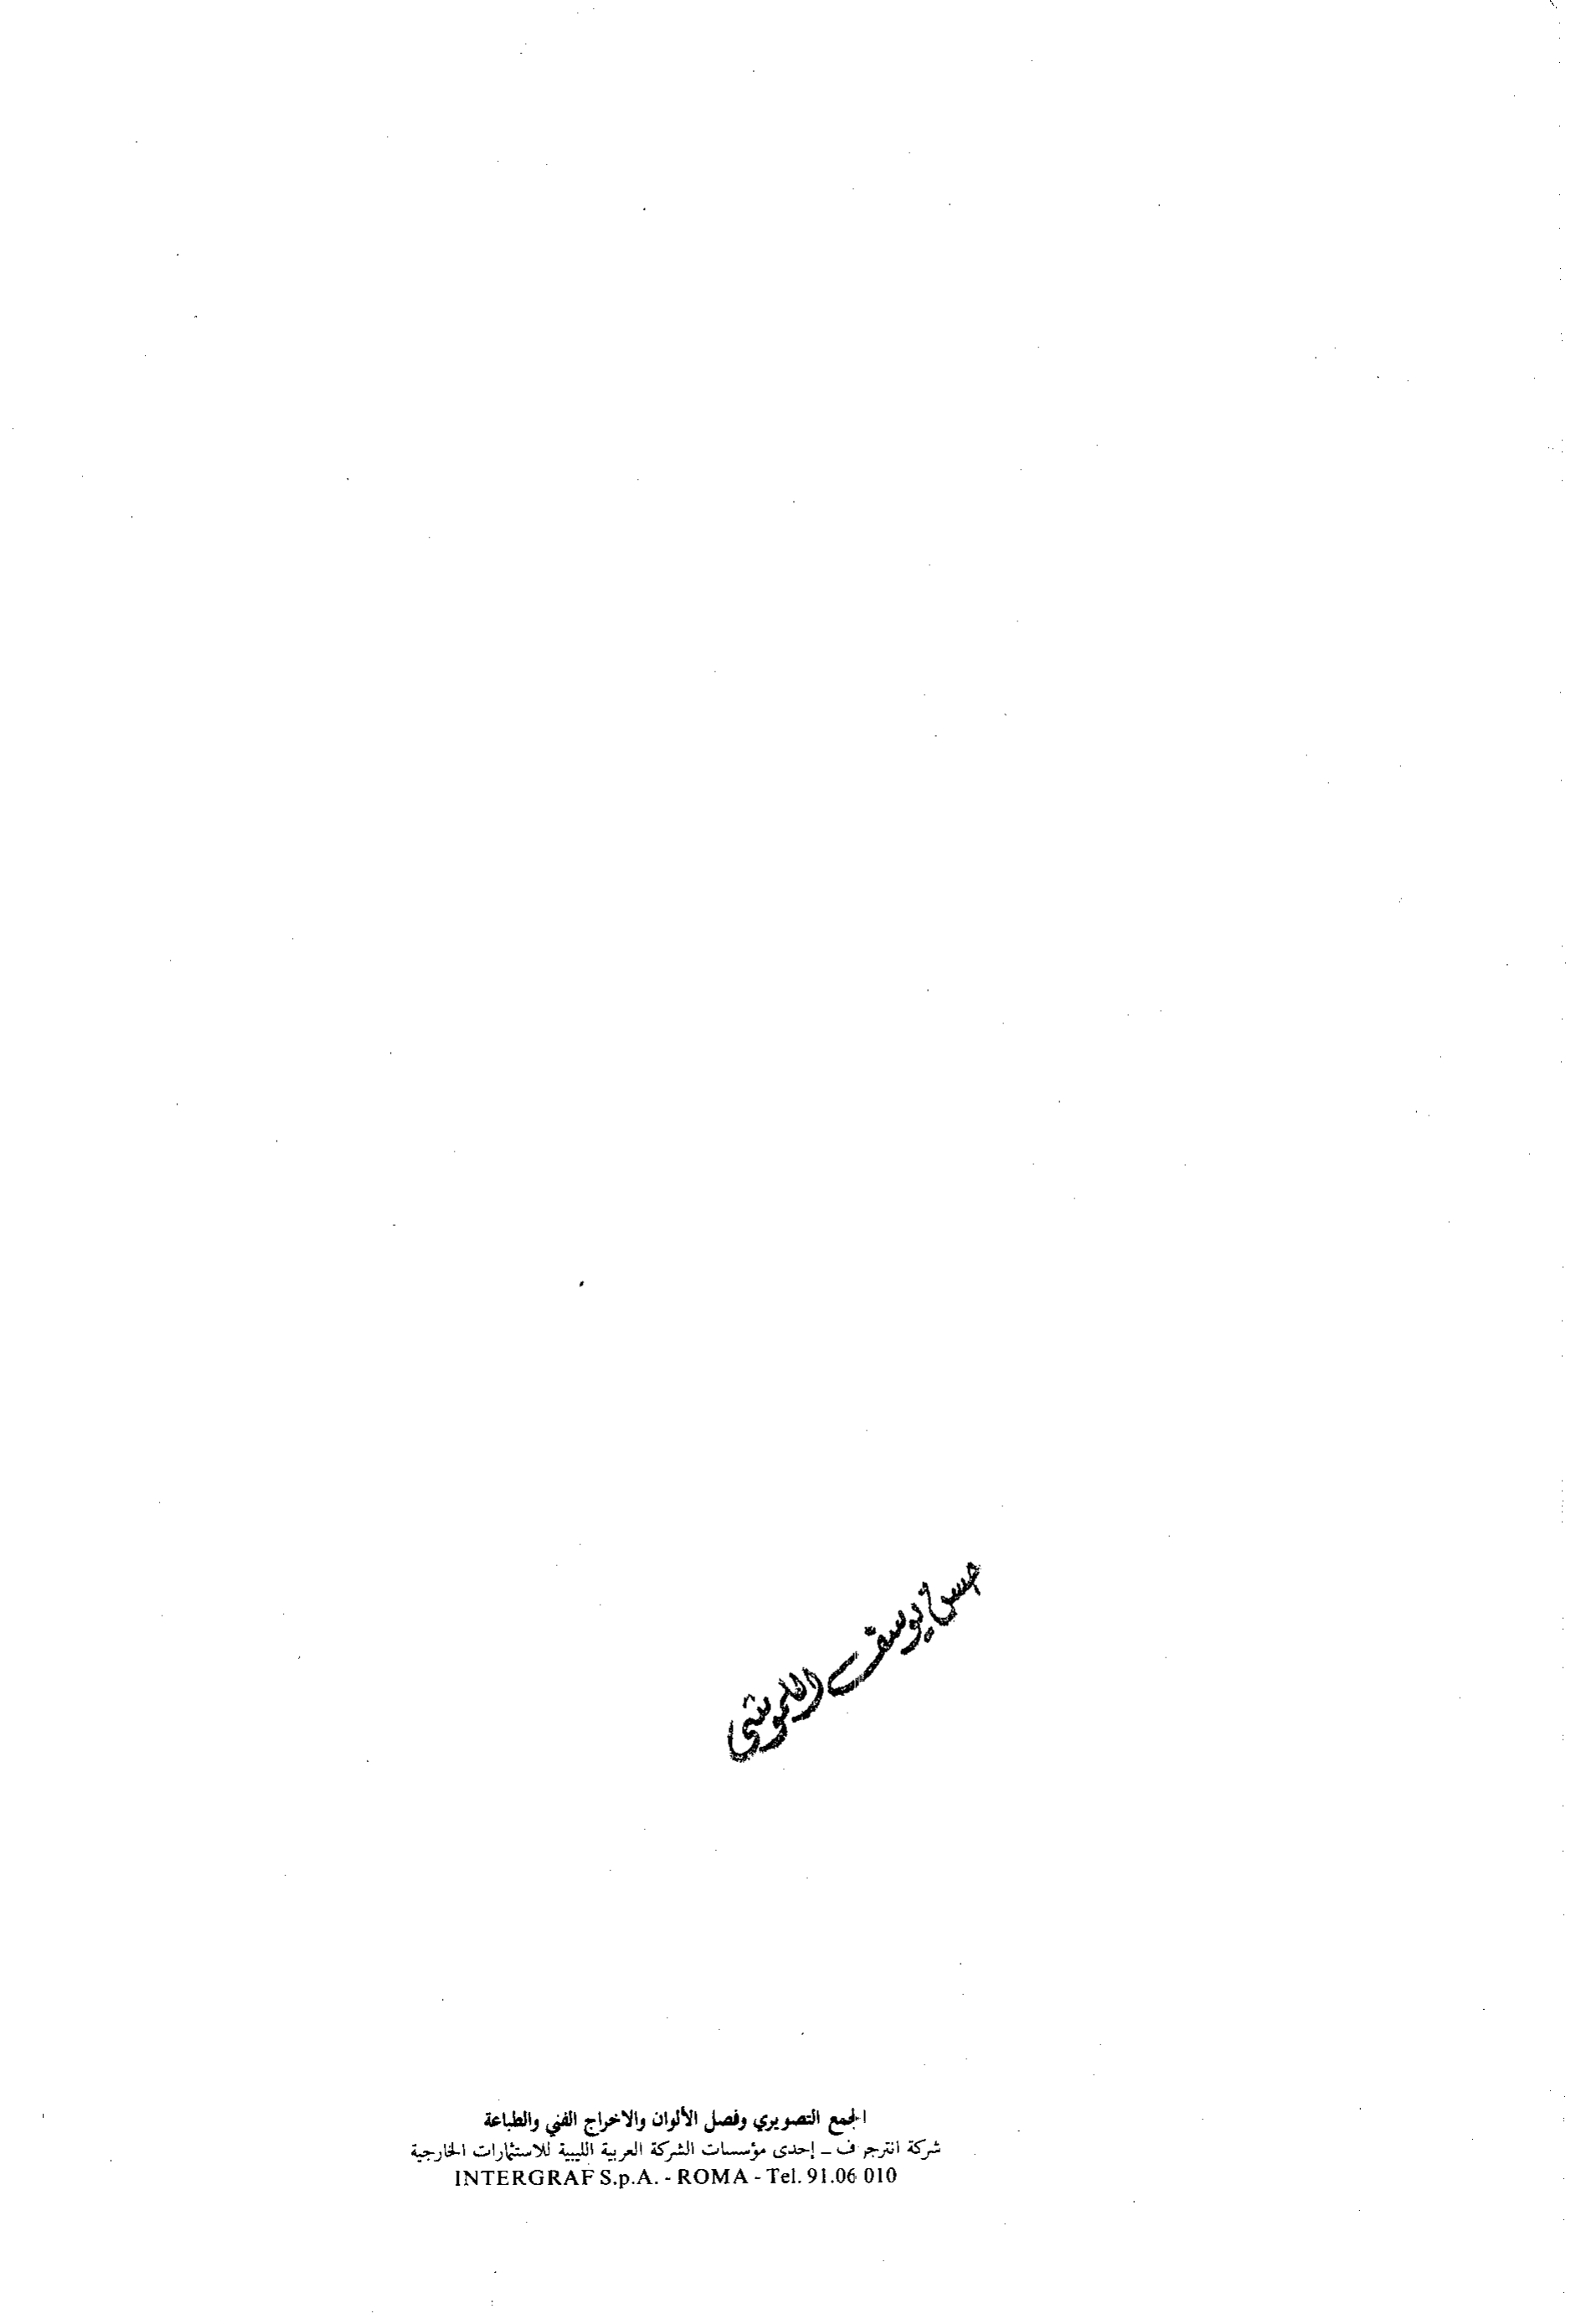 حسن يوسف اللموشي
الجمع التصويري وفصل الألوان والاخراج الفني والطباعة
شركة انترجرف - إحدى مؤسسات الشركة العربية الليبية للاستثمارات الخارجية
INTERGRAF S.p.A. - ROMA - Tel. 91.06 010